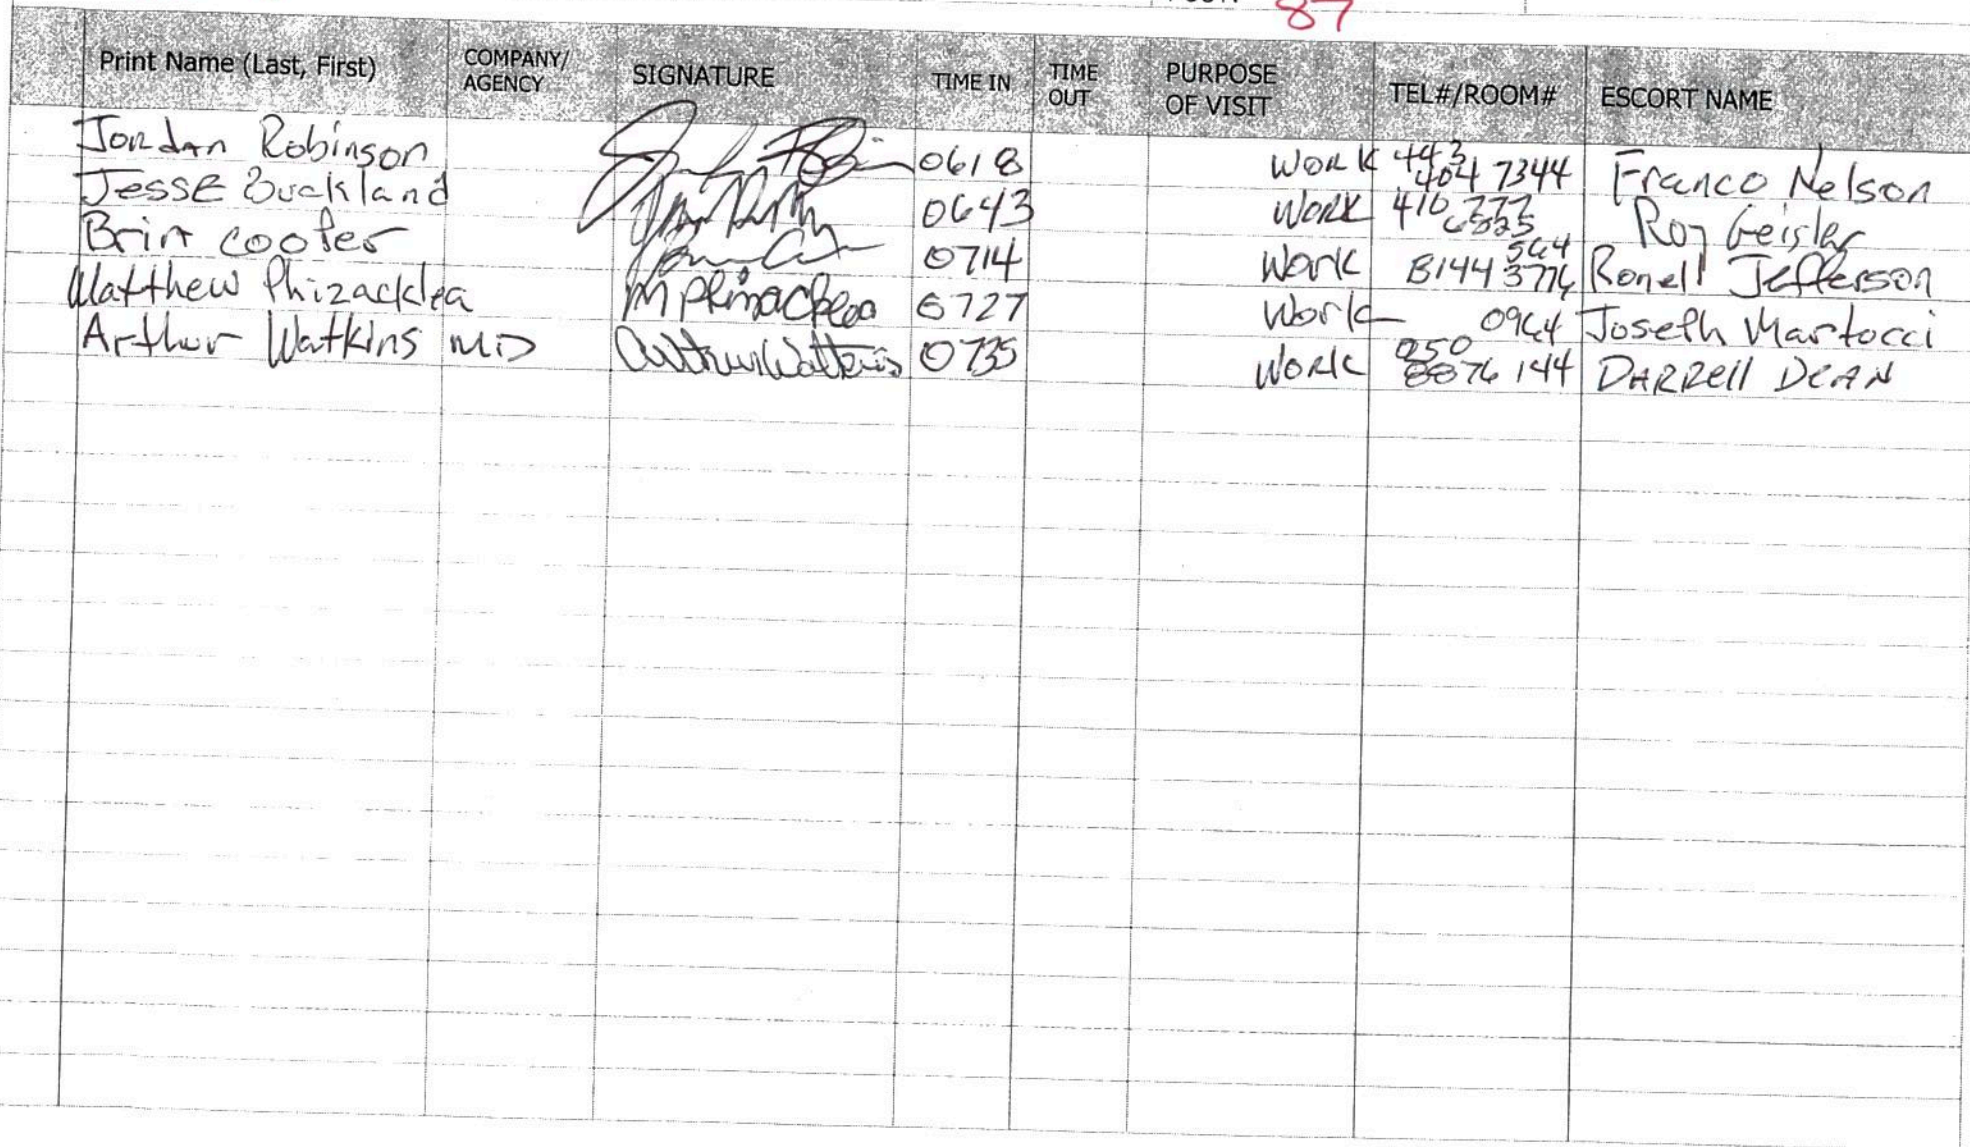 87
Print Name (Last, First) COMPANY/ AGENCY SIGNATURE TIME IN TIME OUT PURPOSE OF VISIT TEL#/ROOM# ESCORT NAME
Jordan Robinson 0618 WORK 443 404 7344 Franco Nelson
JessE Buckland 0643 WORK 410 777 Roy Geisler
Brin cooper 0714 Work 564 Ronell Jefferson
Matthew Phizacklea M Phizacklea 0727 Work 0964 Joseph Martocci
Arthur Watkins MD Arthur Watkins 0735 Work 144 DARRell DeAN